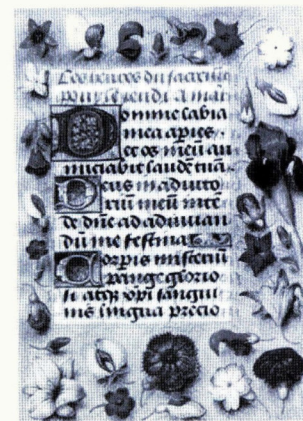 Les heures du sacremēt
pour le jeudi a mat
Domine labia
mea apies.
Et os meū an
nūciabit laudē tuā.
Deus in adiuto
riū meū intē
de dn̄e ad adiuuan
dū me festina
Corpis misteriū
pange glorio
si atqꝫ sangui
nis lingua precio